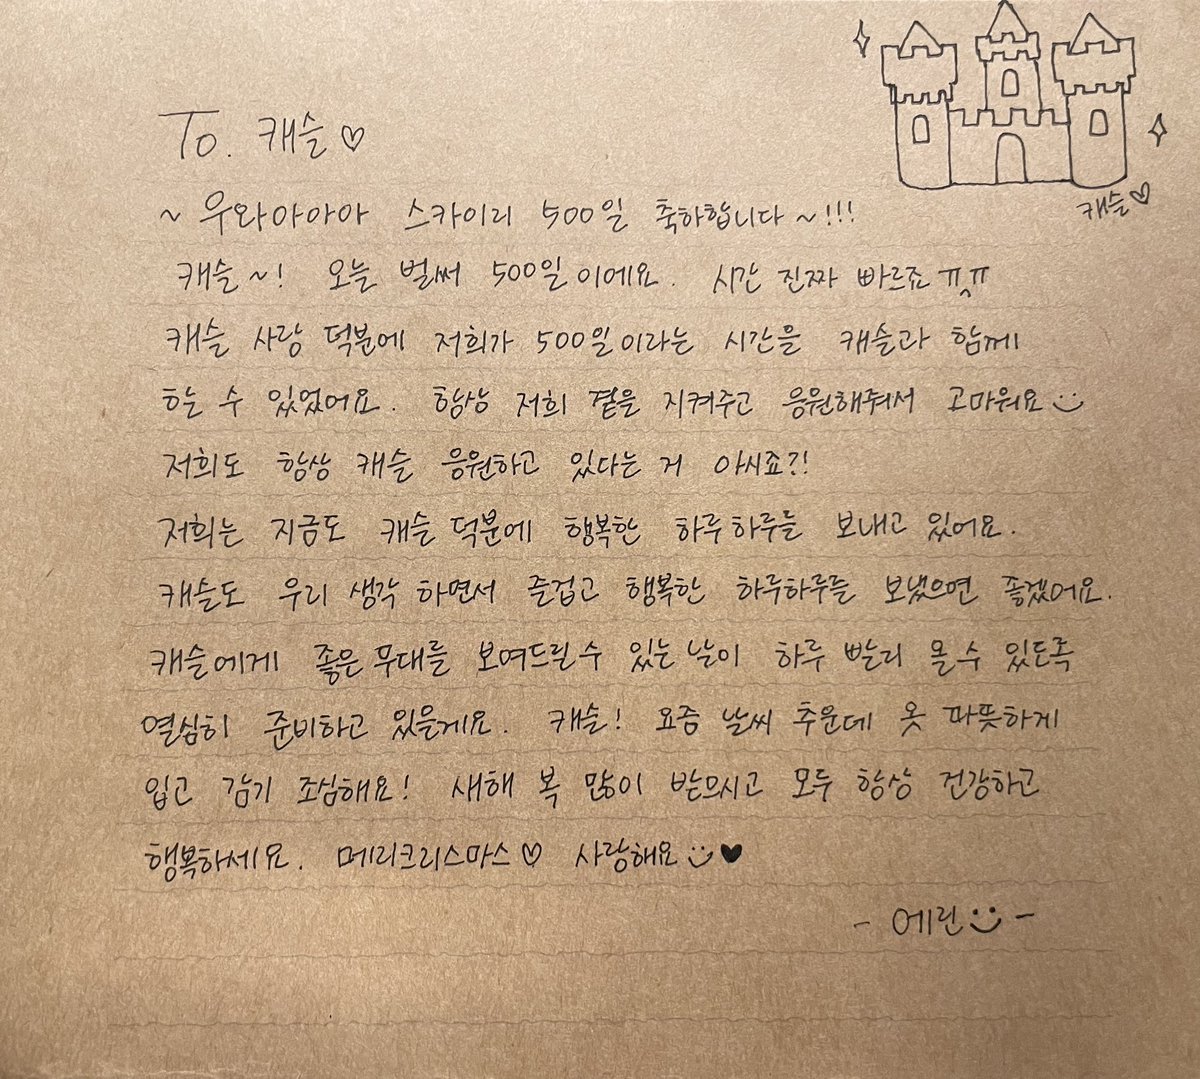 To. 캐슬♡
캐슬♡
~ 우와아아아 스카이리 500일 축하합니다~!!!
캐슬~! 오늘 벌써 500일이에요. 시간 진짜 빠르죠 ㅠ^ㅠ
캐슬 사랑 덕분에 저희가 500일이라는 시간을 캐슬과 함께
하는 수 있었어요. 항상 저희 곁을 지켜주고 응원해줘서 고마워요 :)
저희도 항상 캐슬 응원하고 있다는 거 아시죠?!
저희는 지금도 캐슬 덕분에 행복한 하루하루를 보내고 있어요.
캐슬도 우리 생각 하면서 즐겁고 행복한 하루하루를 보냈으면 좋겠어요.
캐슬에게 좋은 무대를 보여드릴 수 있는 날이 하루 빨리 올 수 있도록
열심히 준비하고 있을게요. 캐슬! 요즘 날씨 추운데 옷 따뜻하게
입고 감기 조심해요! 새해 복 많이 받으시고 모두 항상 건강하고
행복하세요. 메리크리스마스♡ 사랑해요 :) ♥
- 에린 :) -